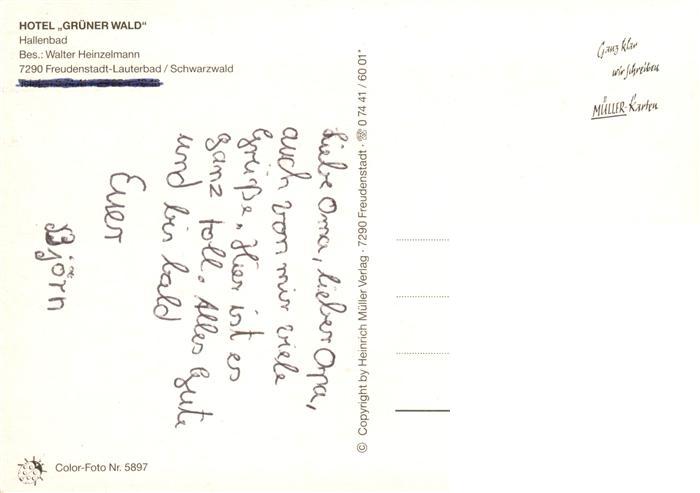 HOTEL „GRÜNER WALD“
Hallenbad
Bes.: Walter Heinzelmann
7290 Freudenstadt-Lauterbad / Schwarzwald
Liebe Oma, lieber Opa,
auch von mir viele
Grüße. Hier ist es
ganz toll. Alles Gute
und bis bald
Euer
Björn
© Copyright by Heinrich Müller Verlag · 7290 Freudenstadt · ☏ 0 74 41 / 60 01*
Ganz klar
wir schreiben
MÜLLER-Karten
Color-Foto Nr. 5897